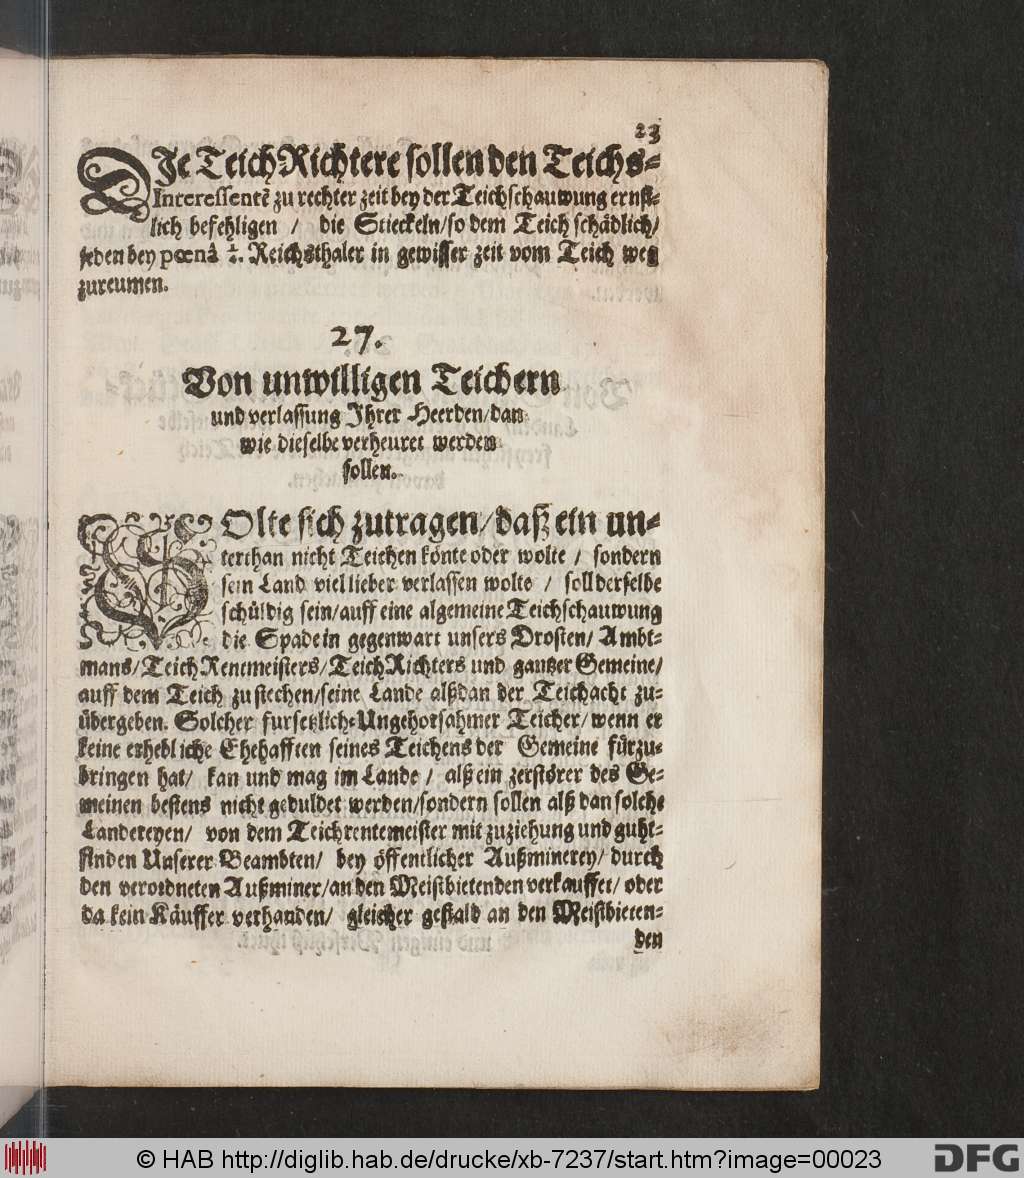 23
DJe TeichRichtere sollen den Teichs-
Interessentē zu rechter zeit bey der Teichschauwung ernst-
lich befehligen / die Stieckeln/so dem Teich schädlich/
jeden bey pœnâ ½. Reichsthaler in gewisser zeit vom Teich weg
zureumen.
27.
Von unwilligen Teichern
und verlassung Jhrer Heerden/dan
wie dieselbe verheuret werden
sollen.
SOlte sich zutragen/daß ein un-
terthan nicht Teichen könte oder wolte / sondern
sein Land viel lieber verlassen wolte / soll derselbe
schüldig sein/auff eine algemeine Teichschauwung
die Spade in gegenwart unsers Drosten/ Ambt-
mans/TeichRentmeisters/TeichRichters und gantzer Gemeine/
auff dem Teich zu stechen/seine Lande alßdan der Teichacht zu-
übergeben. Solcher fursetzlich-Ungehorsahmer Teicher/wenn er
keine erhebliche Ehehafften seines Teichens der Gemeine fürzu-
bringen hat/ kan und mag im Lande / alß ein zerstörer des Ge-
meinen bestens nicht geduldet werden/sondern sollen alß dan solche
Landereyen/ von dem Teichrentemeister mit zuziehung und guht-
finden Unserer Beambten/ bey öffentlicher Außminerey/ durch
den verordneten Außminer/an den Meistbietenden verkauffet/ oder
da kein Käuffer verhanden/ gleicher gestald an den Meistbieten-
den
© HAB http://diglib.hab.de/drucke/xb-7237/start.htm?image=00023
DFG